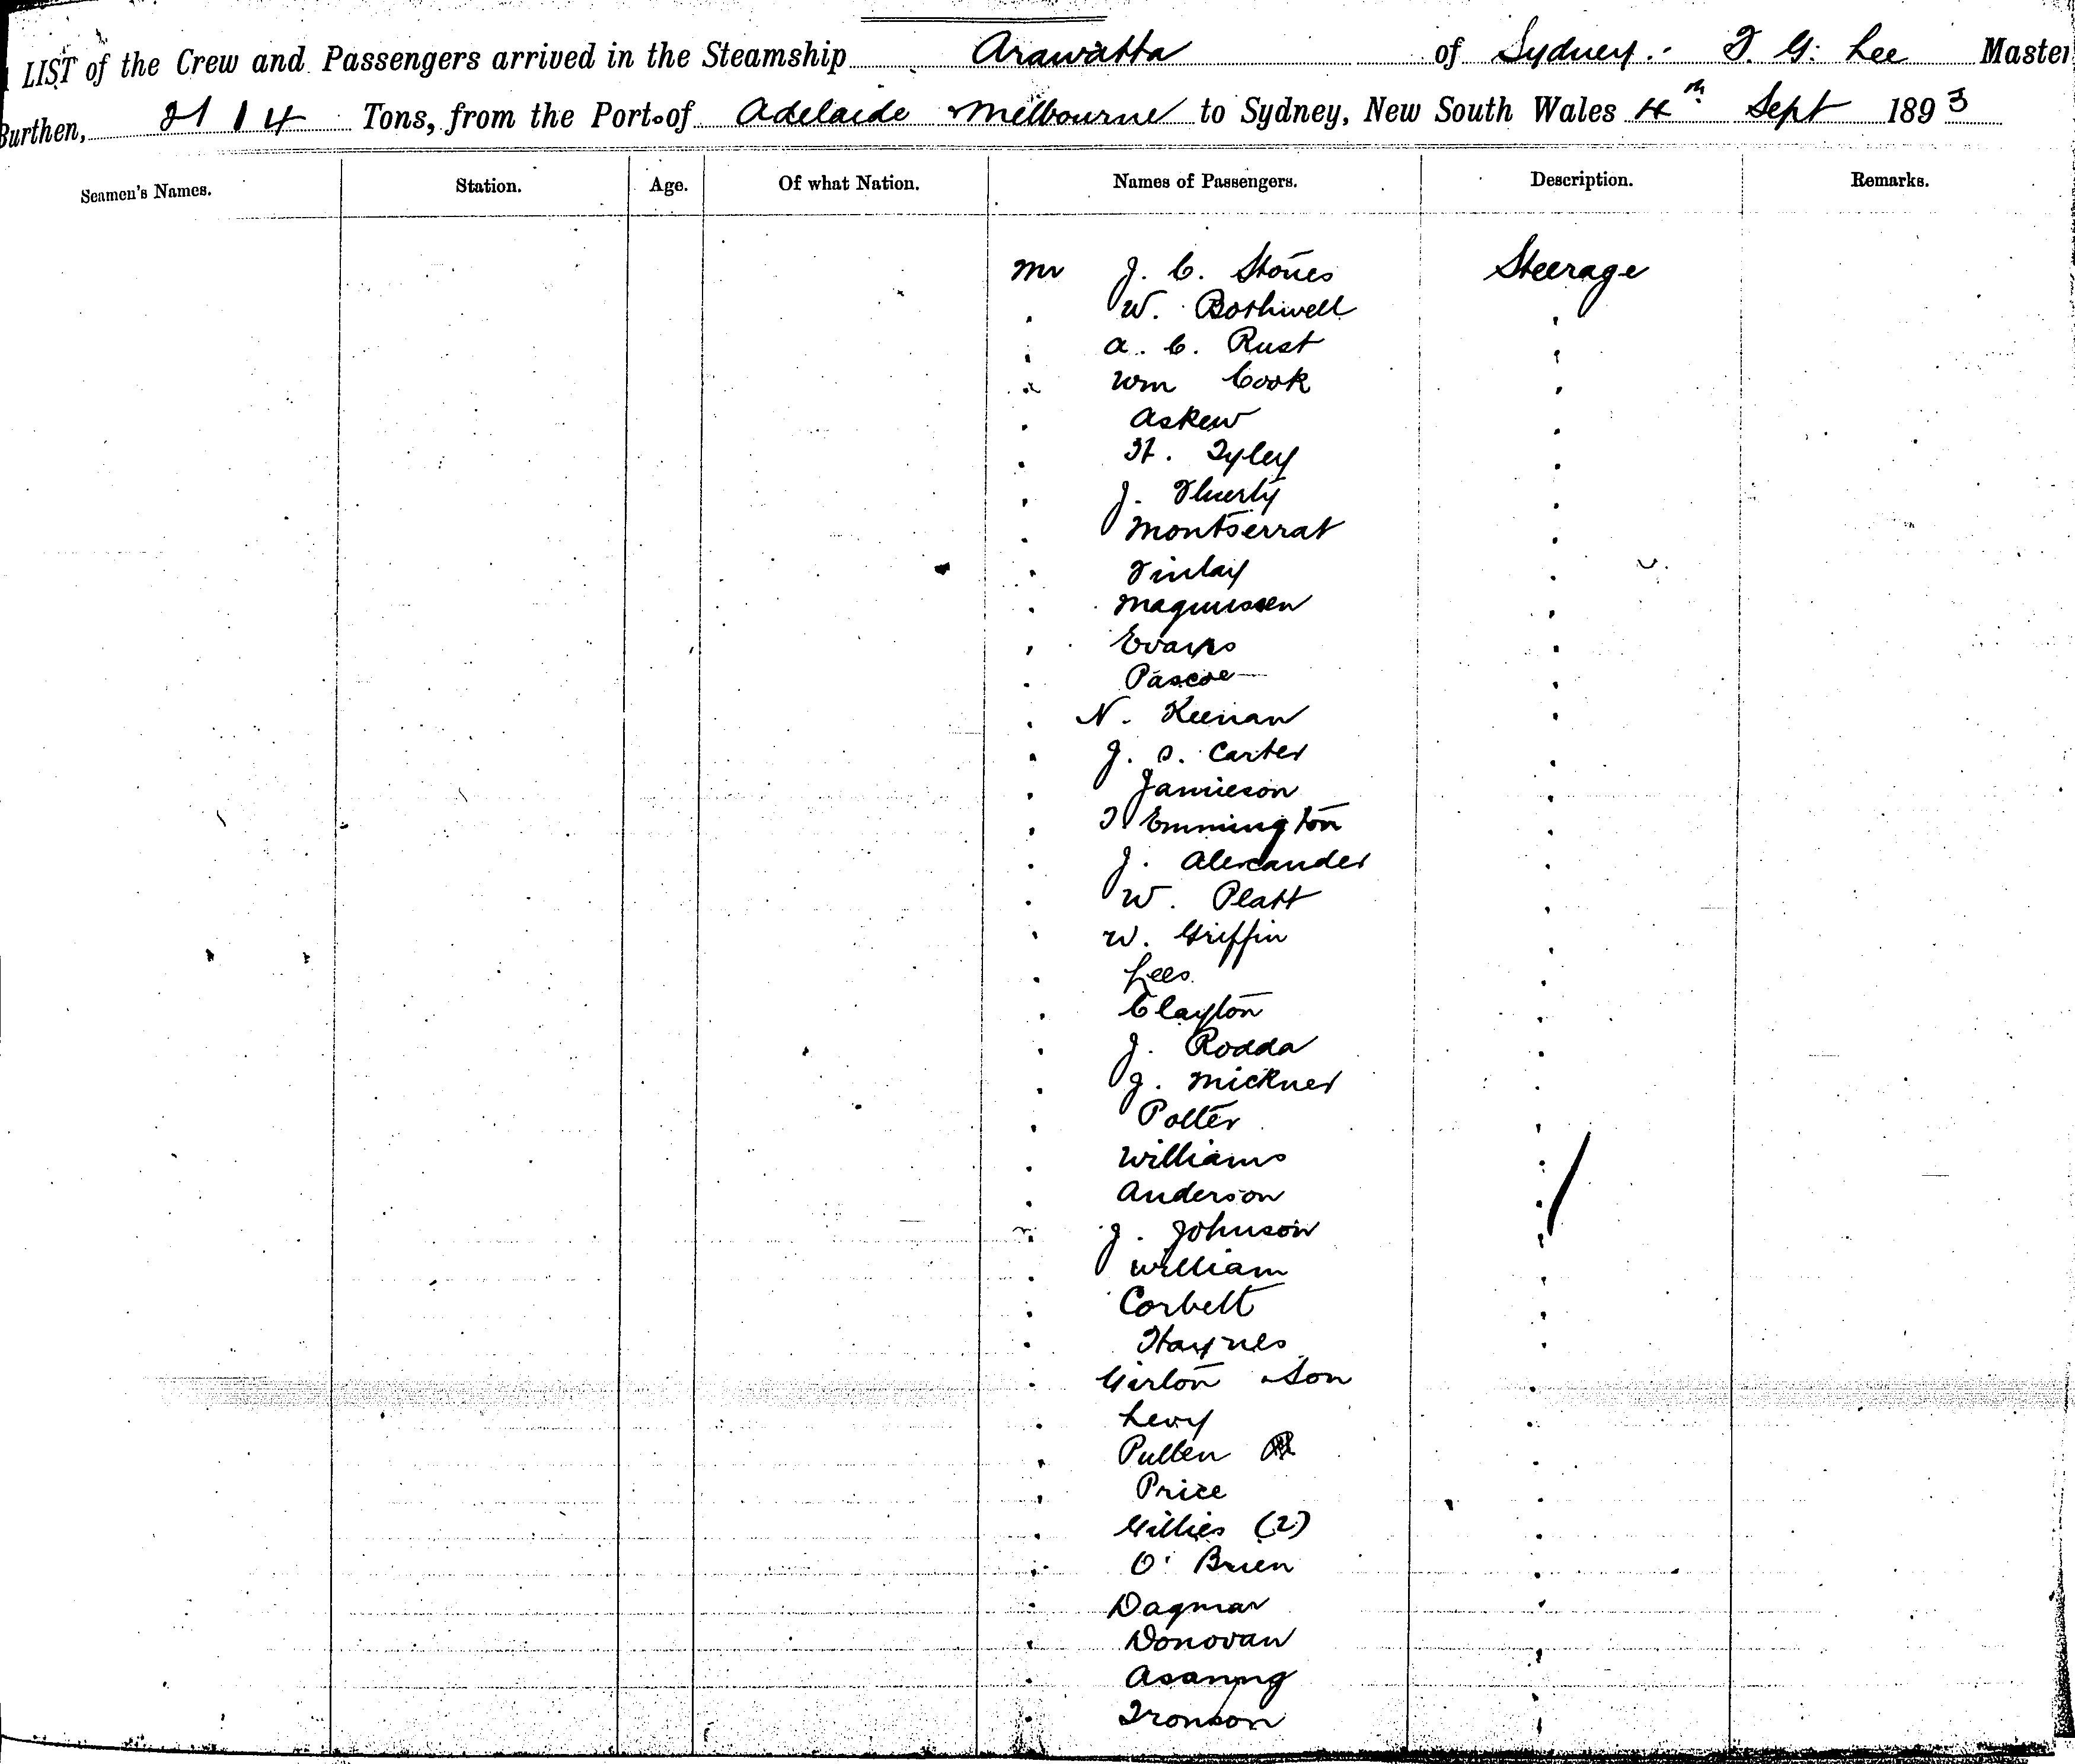 LIST of the Crew and Passengers arrived in the Steamship Arawatta of Sydney. T. G. Lee Master
Burthen, 2114 Tons, from the Port of Adelaide Melbourne to Sydney, New South Wales 4th Sept 1893
Seamen's Names. Station. Age. Of what Nation. Names of Passengers. Description. Remarks.
Mr J. C. Stones Steerage
W. Bothwell
A. C. Rust
Wm Cook
Askew
H. Tyley
J.
Montserrat
Finlay
Magnussen
Evans
Pascoe
N. Keenan
J. S. Carter
Jamieson
T. Emmington
J. Alexander
W. Platt
W. Griffin
Lees
Clayton
J. Rodda
J. Mickner
Potter
Williams
Anderson
J. Johnson
William
Corbett
Haynes
Girton Son
Levy
Pullen
Price
Gillies (2)
O'Brien
Dagmar
Donovan
Tronson